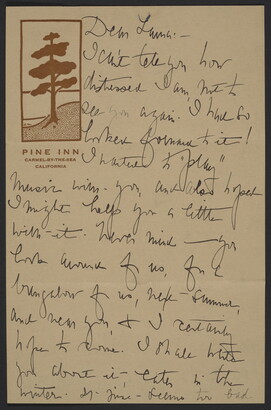 Dear Lama:-
I can't tell you how
distressed I am not to
see you again. I had so
looked forward to it!
I wanted to "play"
PINE INN
CARMEL-BY-THE-SEA
CALIFORNIA
music with you and also hoped
I might help you a little
with it. Never mind — you
look around for us, for a
bungalow for us, next summer,
and near you & I certainly
hope to come. I shall write
you about it - later in the
winter. It seems too bad